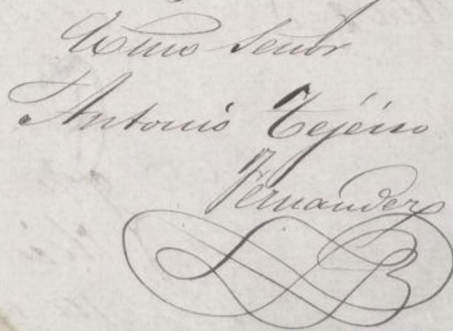 Exmo Señor
Antonio Tejéiro
Fernandez